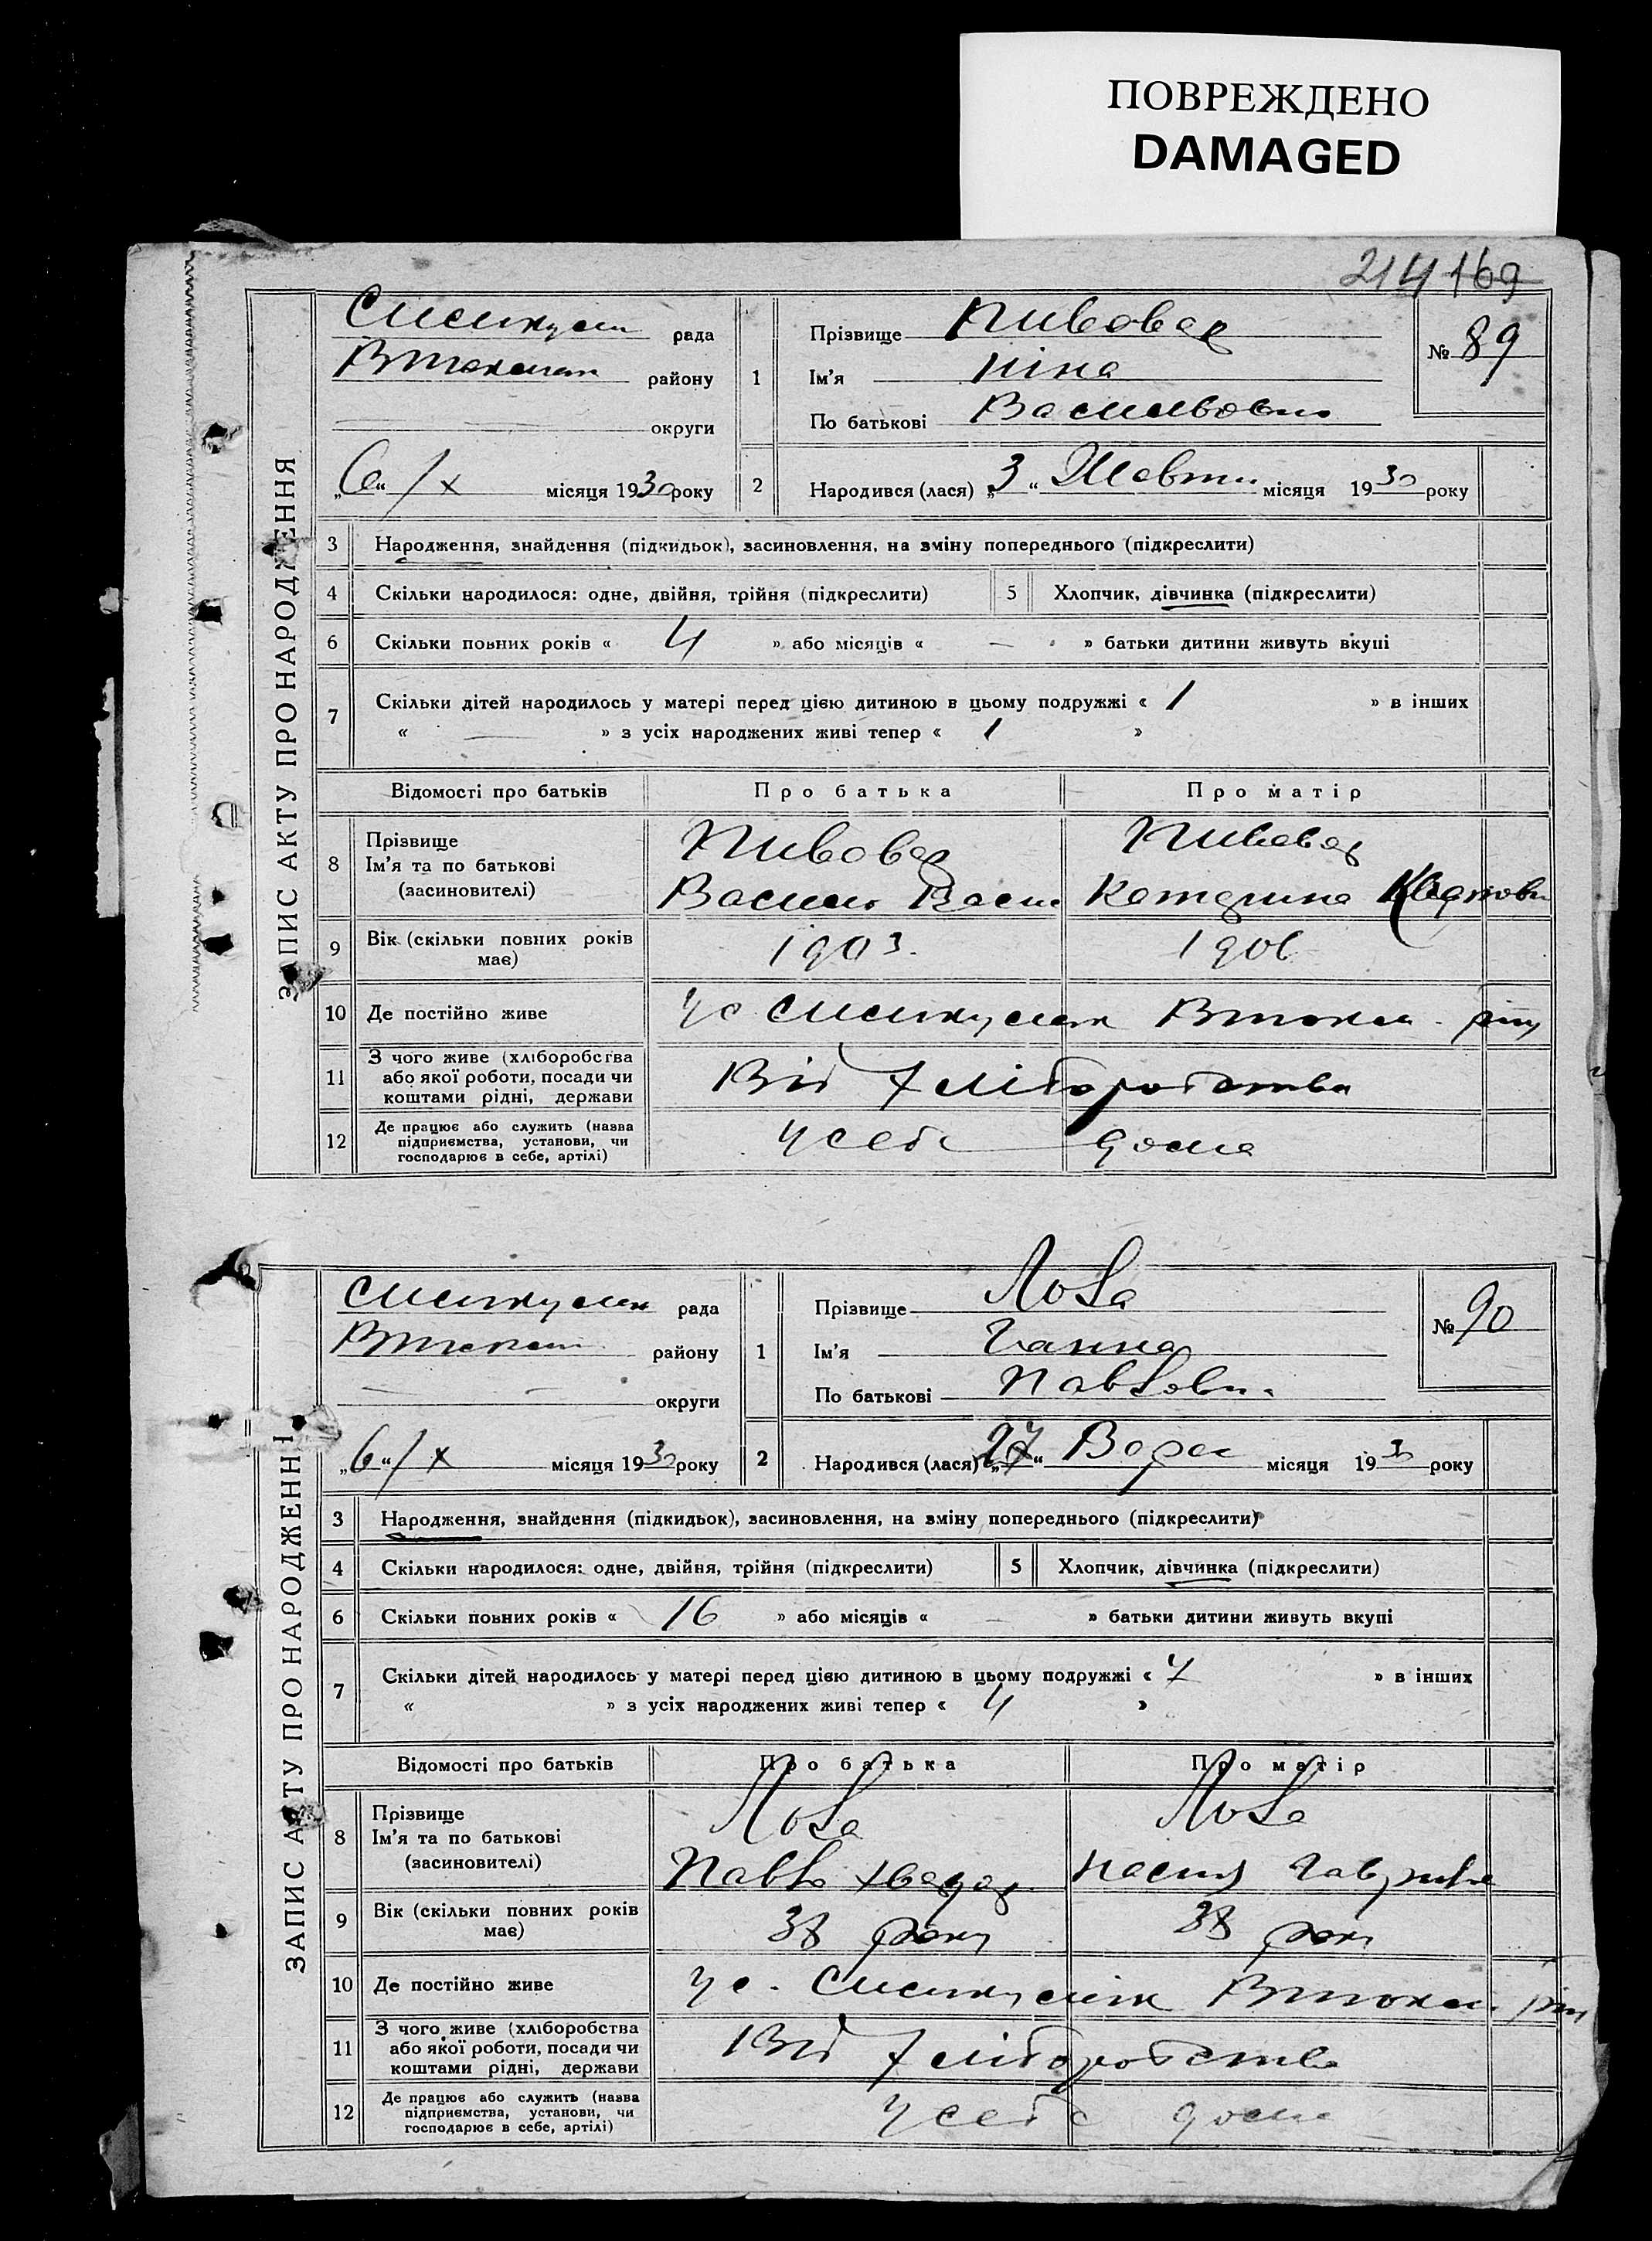 ПОВРЕЖДЕНО
DAMAGED
214 169
ЗАПИС АКТУ ПРО НАРОДЖЕННЯ
рада
району
округи
„6“ / X місяця 1930 року
1 Прізвище Пивовар
Ім’я Ніна
По батькові
№ 89
2 Народився (лася) „3“ Жовтн місяця 1930 року
3 Народження, знайдення (підкидьок), засиновлення, на зміну попереднього (підкреслити)
4 Скільки народилося: одне, двійня, трійня (підкреслити) 5 Хлопчик, дівчинка (підкреслити)
6 Скільки повних років « 4 » або місяців « — » батьки дитини живуть вкупі
7 Скільки дітей народилось у матері перед цією дитиною в цьому подружжі « 1 » в інших
« — » з усіх народжених живі тепер « 1 »
Відомості про батьків Про батька Про матір
8 Прізвище Пивовар Пивовар
Ім’я та по батькові
(засновителі) Василь Васил Катерина
9 Вік (скільки повних років 1903. 1906
має)
10 Де постійно живе
11 З чого живе (хліборобства
або якої роботи, посади чи Від хліборобства
коштами рідні, держави
12 Де працює або служить (назва
підприємства, установи, чи у себе дома
господарює в себе, артілі)
ЗАПИС АКТУ ПРО НАРОДЖЕННІ
рада
району
округи
„6“ / X місяця 1930 року
1 Прізвище Лоза
Ім’я Ганна
По батькові
№ 90
2 Народився (лася) „27“ Верес місяця 1930 року
3 Народження, знайдення (підкидьок), засиновлення, на зміну попереднього (підкреслити)
4 Скільки народилося: одне, двійня, трійня (підкреслити) 5 Хлопчик, дівчинка (підкреслити)
6 Скільки повних років « 16 » або місяців « — » батьки дитини живуть вкупі
7 Скільки дітей народилось у матері перед цією дитиною в цьому подружжі « 7 » в інших
« » з усіх народжених живі тепер « 4 »
Відомості про батьків Про батька Про матір
8 Прізвище Лоза Лоза
Ім’я та по батькові
(засиновителі) Павло
9 Вік (скільки повних років 38 роки 38 роки
має)
10 Де постійно живе
11 З чого живе (хліборобства
або якої роботи, посади чи Від хліборобства
коштами рідні, держави
12 Де працює або служить (назва
підприємства, установи, чи у себе дома
господарює в себе, артілі)